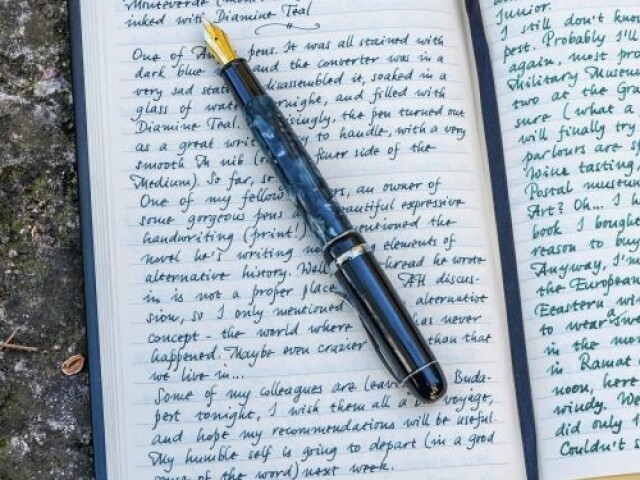 Monteverde (Mon
inked with Diamine Teal
One of pens. It was all stained with
dark blue and the converter was in a
very sad state disassembled it, soaked in a
glass of water, and filled with
Diamine Teal. the pen turned out
as a great to handle, with a very
smooth M nib finer side of the
Medium). So far, so
One of my fellow, an owner of
some gorgeous pens expressive
handwriting (print!) mentioned the
novel he's writing elements of
alternative history. thread he wrote
in is not a proper place AH discus-
sion, so I only mentioned alternative
concept - the world where has never
happened. Maybe even crazier than that
we live in...
Some of my colleagues are Buda-
pest tonight, I wish them all a voyage,
and hope my recommendations will be useful.
My humble self is going to depart (in a good
sense of the word) next week.
Junior.
I still don't know
pest. Probably I'll
again, most pro
Military Museum
two at the Gra
sure (what a
will finally try
parlours are sp
Wine tasting
Postal museum
Art? Oh... I h
book I bough
reason to buy
Anyway, I'm
the European
Eeastern wi
to wear a
in the mor
in Ramat
noon, here
windy. We
did only
Couldn't s